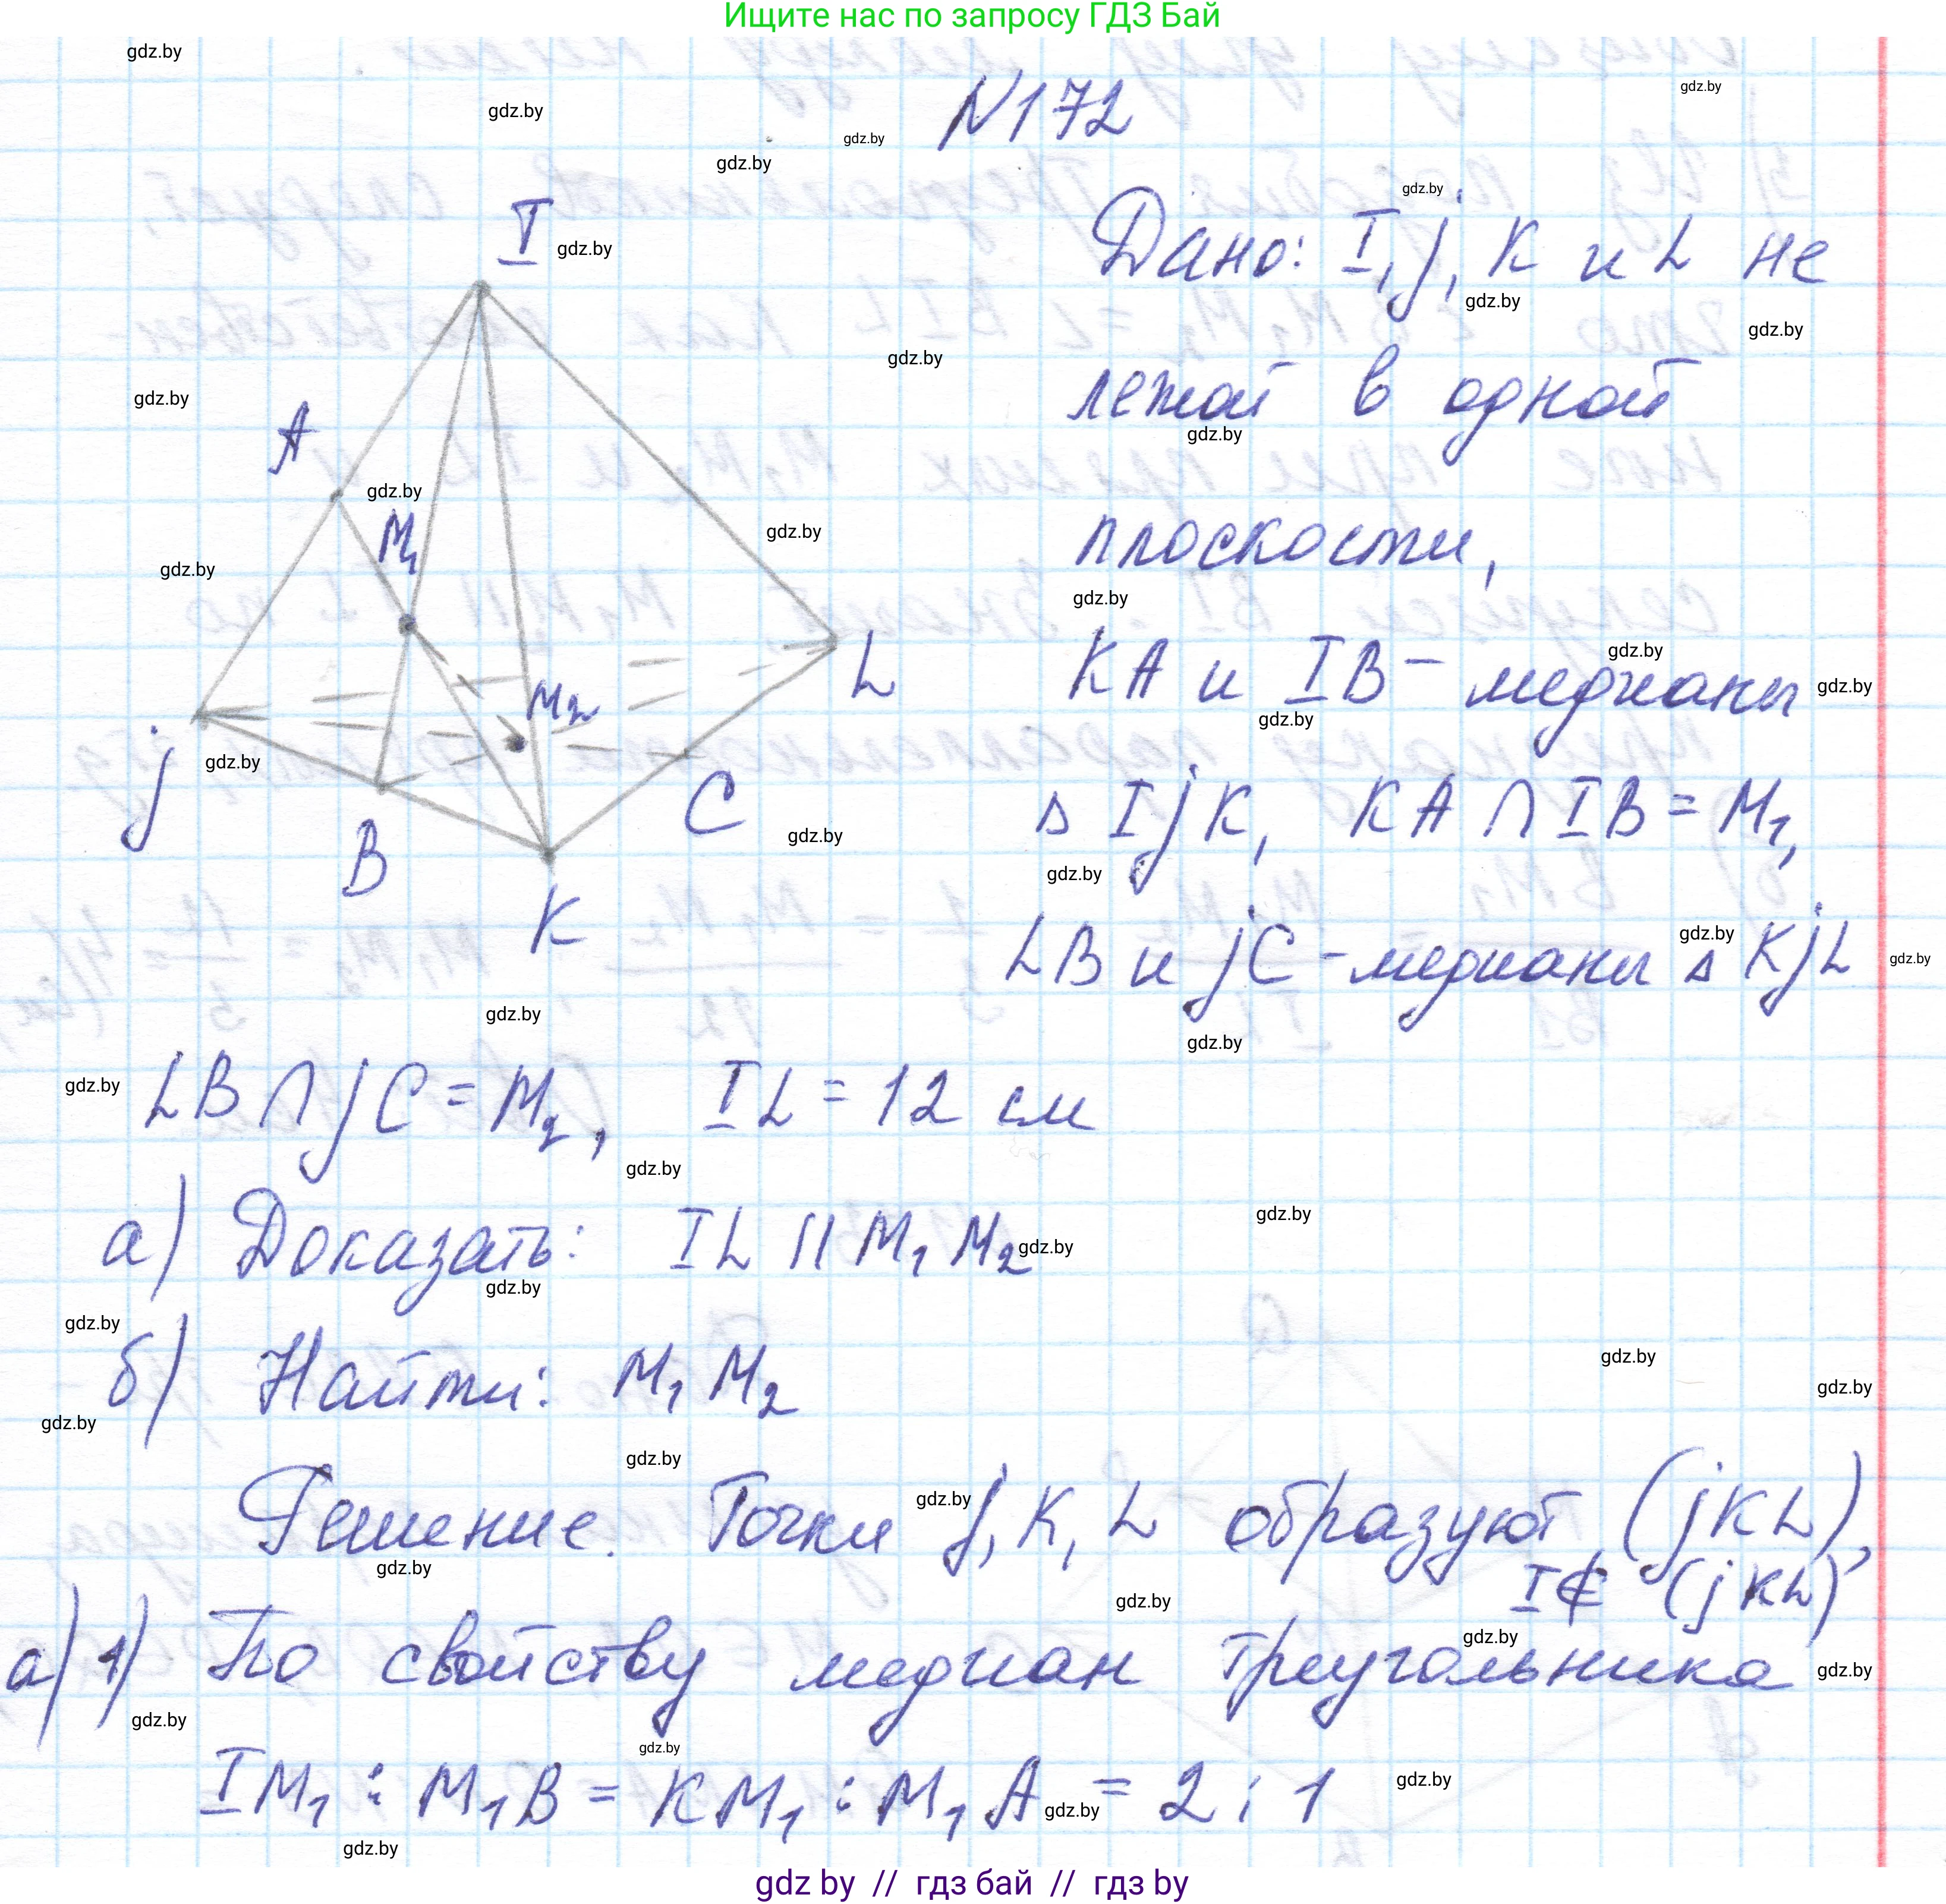 Ищите нас по запросу ГДЗ Бай
N172
Дано: I, j, K и L не
лежат в одной
плоскости,
KA и IB - медианы
Δ IjK, KA ∩ IB = M1,
LB и jC - медианы Δ KjL
LB ∩ jC = M2, IL = 12 см
а) Доказать: IL || M1M2
б) Найти: M1M2
Решение. Точки j, K, L образуют (jKL),
I ∉ (jKL)
а) 1) По свойству медиан треугольника
IM1 : M1B = KM1 : M1A = 2 : 1
I
A
M1
M2
L
j
B
C
K
gdz.by
gdz by // гдз бай // гдз by